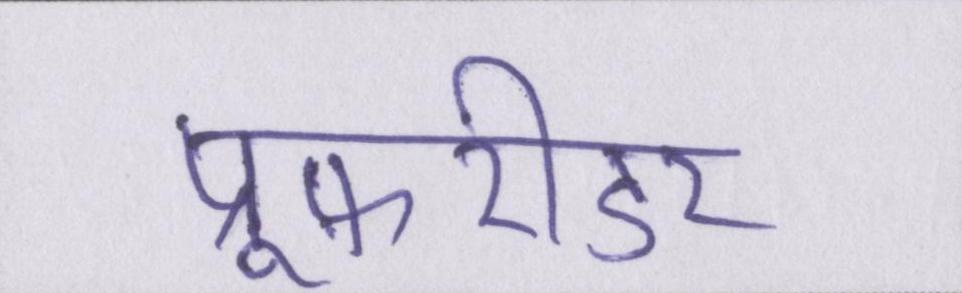 प्रूफरीडर